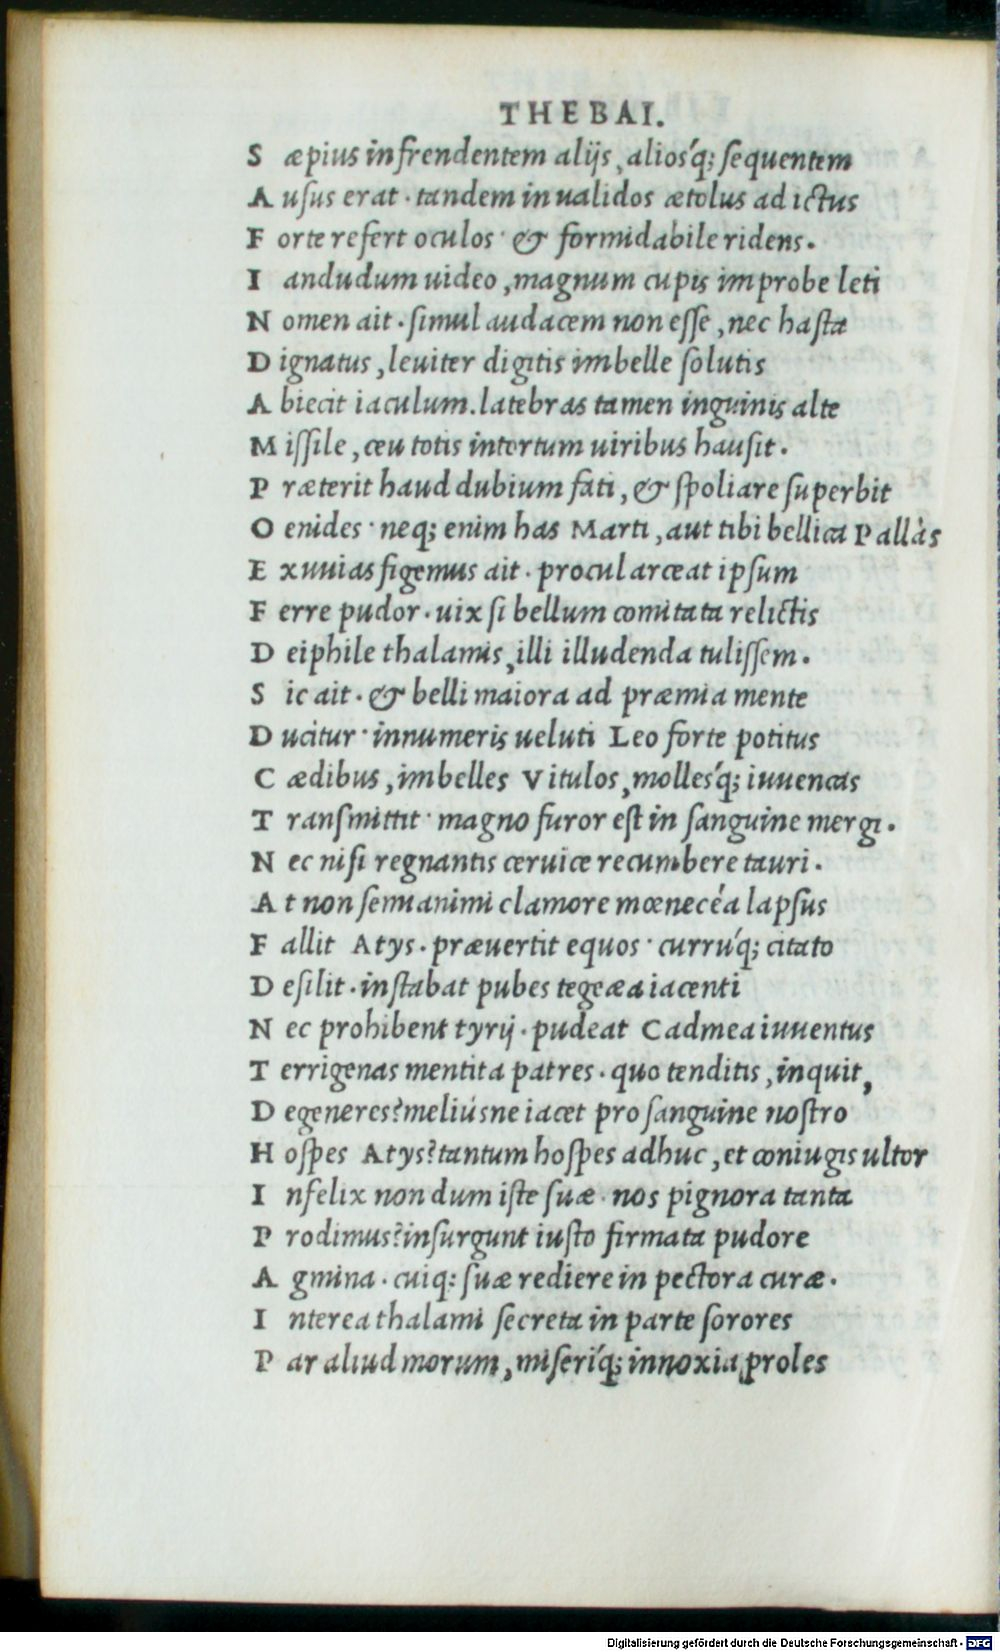 THEBAI.
S æpius infrendentem alijs, aliosq́; sequentem
A usus erat · tandem inualidos ætolus ad ictus
F orte refert oculos · & formidabile ridens.
I andudum uideo, magnum cupis improbe leti
N omen ait · simul audacem non esse, nec hasta
D ignatus, leuiter digitis imbelle solutis
A biecit iaculum. latebras tamen inguinis alte
M issile, ceu totis intortum uiribus hausit.
P ræterit haud dubium fati, & spoliare superbit
O enides · neq; enim has Marti, aut tibi bellica Pallàs
E xuuias figemus ait · procul arceat ipsum
F erre pudor · uix si bellum comitata relictis
D eiphile thalamis, illi illudenda tulissem.
S ic ait · & belli maiora ad præmia mente
D ucitur · innumeris ueluti Leo forte potitus
C ædibus, imbelles Vitulos, mollesq́; iuuencas
T ransmittit · magno furor est in sanguine mergi.
N ec nisi regnantis ceruice recumbere tauri.
A t non semianimi clamore mœnecéa lapsus
F allit Atys · præuertit equos · currúq; citato
D esilit · instabat pubes tegeæa iacenti
N ec prohibent tyrij · pudeat Cadmea iuuentus
T errigenas mentita patres · quo tenditis, inquit,
D egeneres? meliúsne iacet pro sanguine nostro
H ospes Atys? tantum hospes adhuc, et coniugis ultor
I nfelix non dum iste suæ · nos pignora tanta
P rodimus? insurgunt iusto firmata pudore
A gmina · cuiq; suæ rediere in pectora curæ.
I nterea thalami secreta in parte sorores
P ar aliud morum, miseriq́; innoxia proles
Digitalisierung gefördert durch die Deutsche Forschungsgemeinschaft - DFG